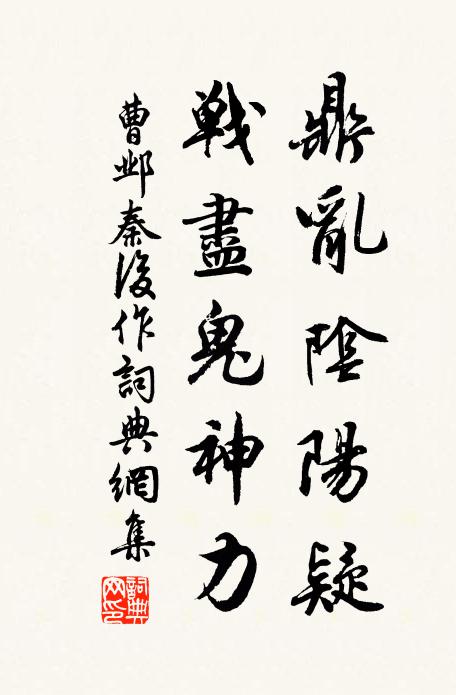 鼎亂陰陽疑
戰盡鬼神力
曹鄴秦後作詞典網集
詞典
网印